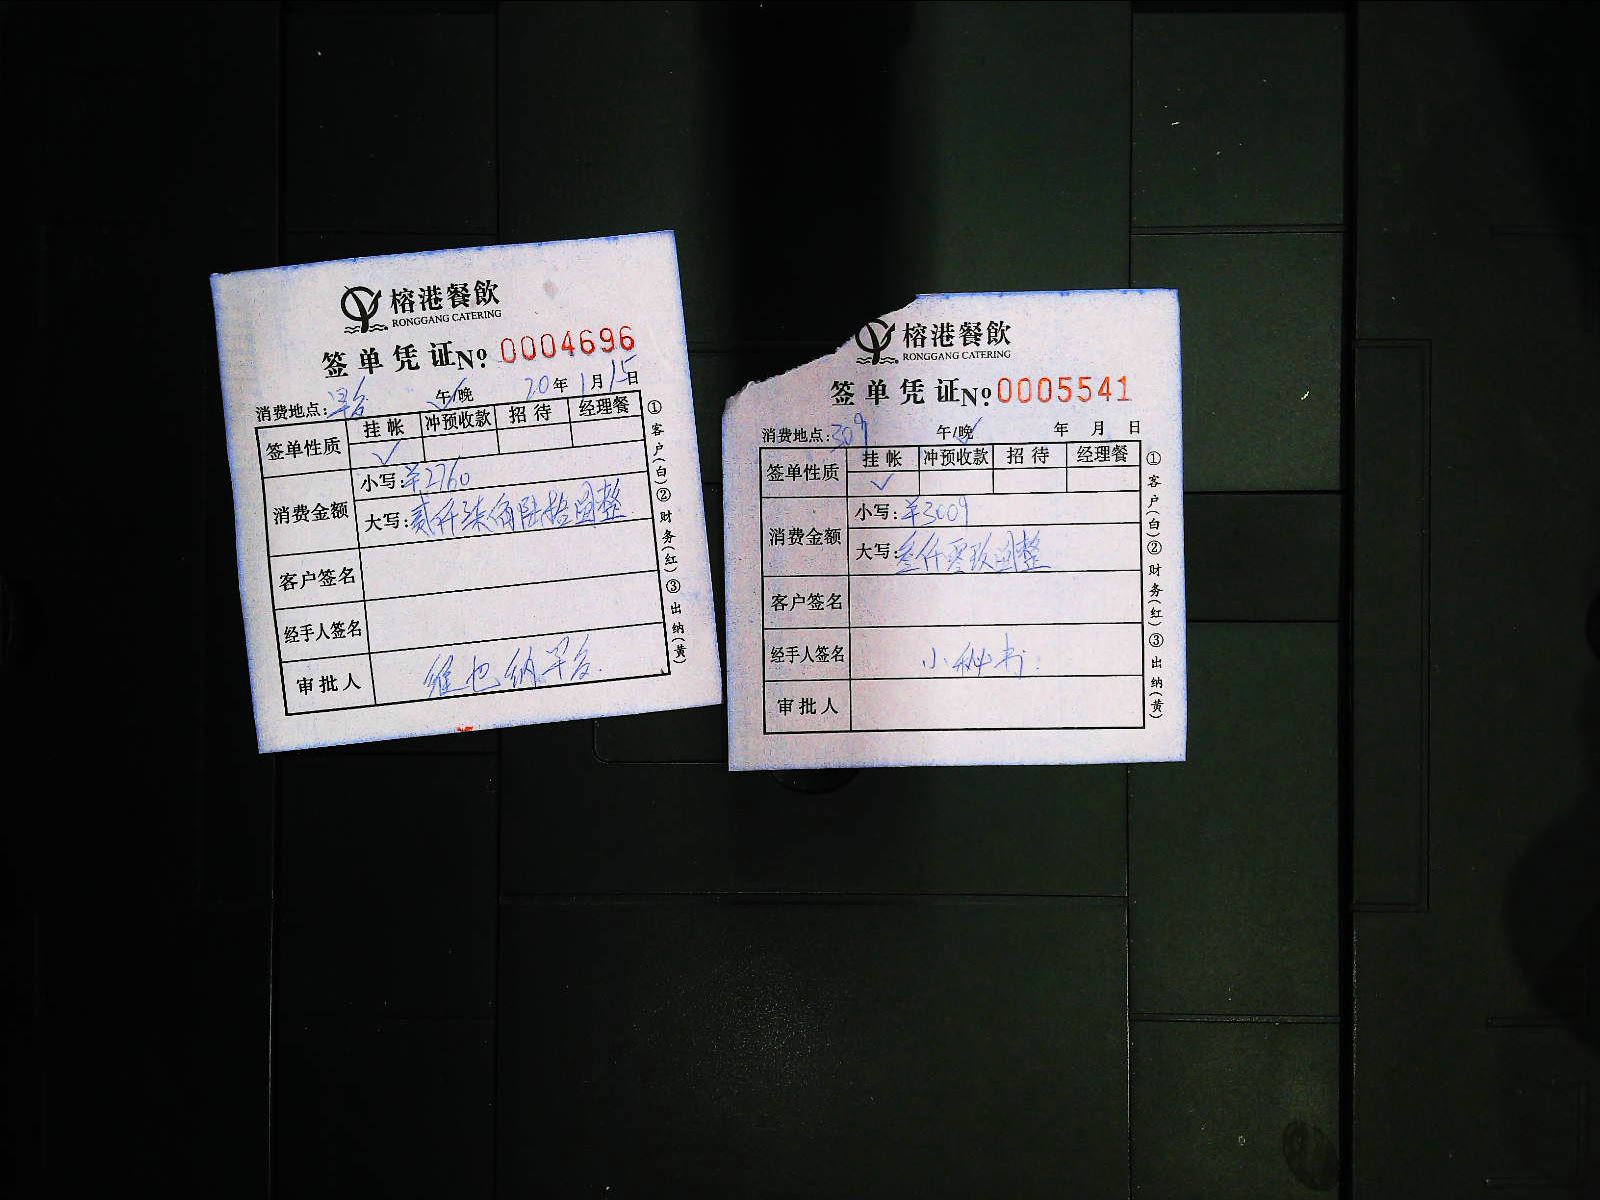 榕港餐飲
RONGGANG CATERING
签单凭证No 0004696
消费地点: 午/晚 20年1月15日
签单性质 挂帐 冲预收款 招待 经理餐
✓
消费金额 小写:¥2760
大写:贰仟柒佰陆拾圆整
客户签名
经手人签名
审批人 维也纳早台
①客户(白)②财务(红)③出纳(黄)
榕港餐飲
RONGGANG CATERING
签单凭证No 0005541
消费地点:309 午/晚 年 月 日
签单性质 挂帐 冲预收款 招待 经理餐
✓
消费金额 小写:¥3009
大写:叁仟零玖圆整
客户签名
经手人签名 小秘书
审批人
①客户(白)②财务(红)③出纳(黄)